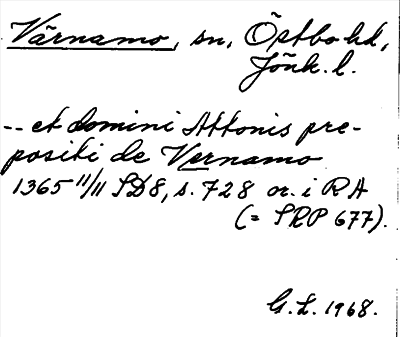 Värnamo, sn, Östbo hd,
Jönk. l.
-- et domini Attonis pre-
positi de Vernamo
1365 11/11 SD8, s. 728 or. i RA
(= SRP 677).
G. L. 1968.